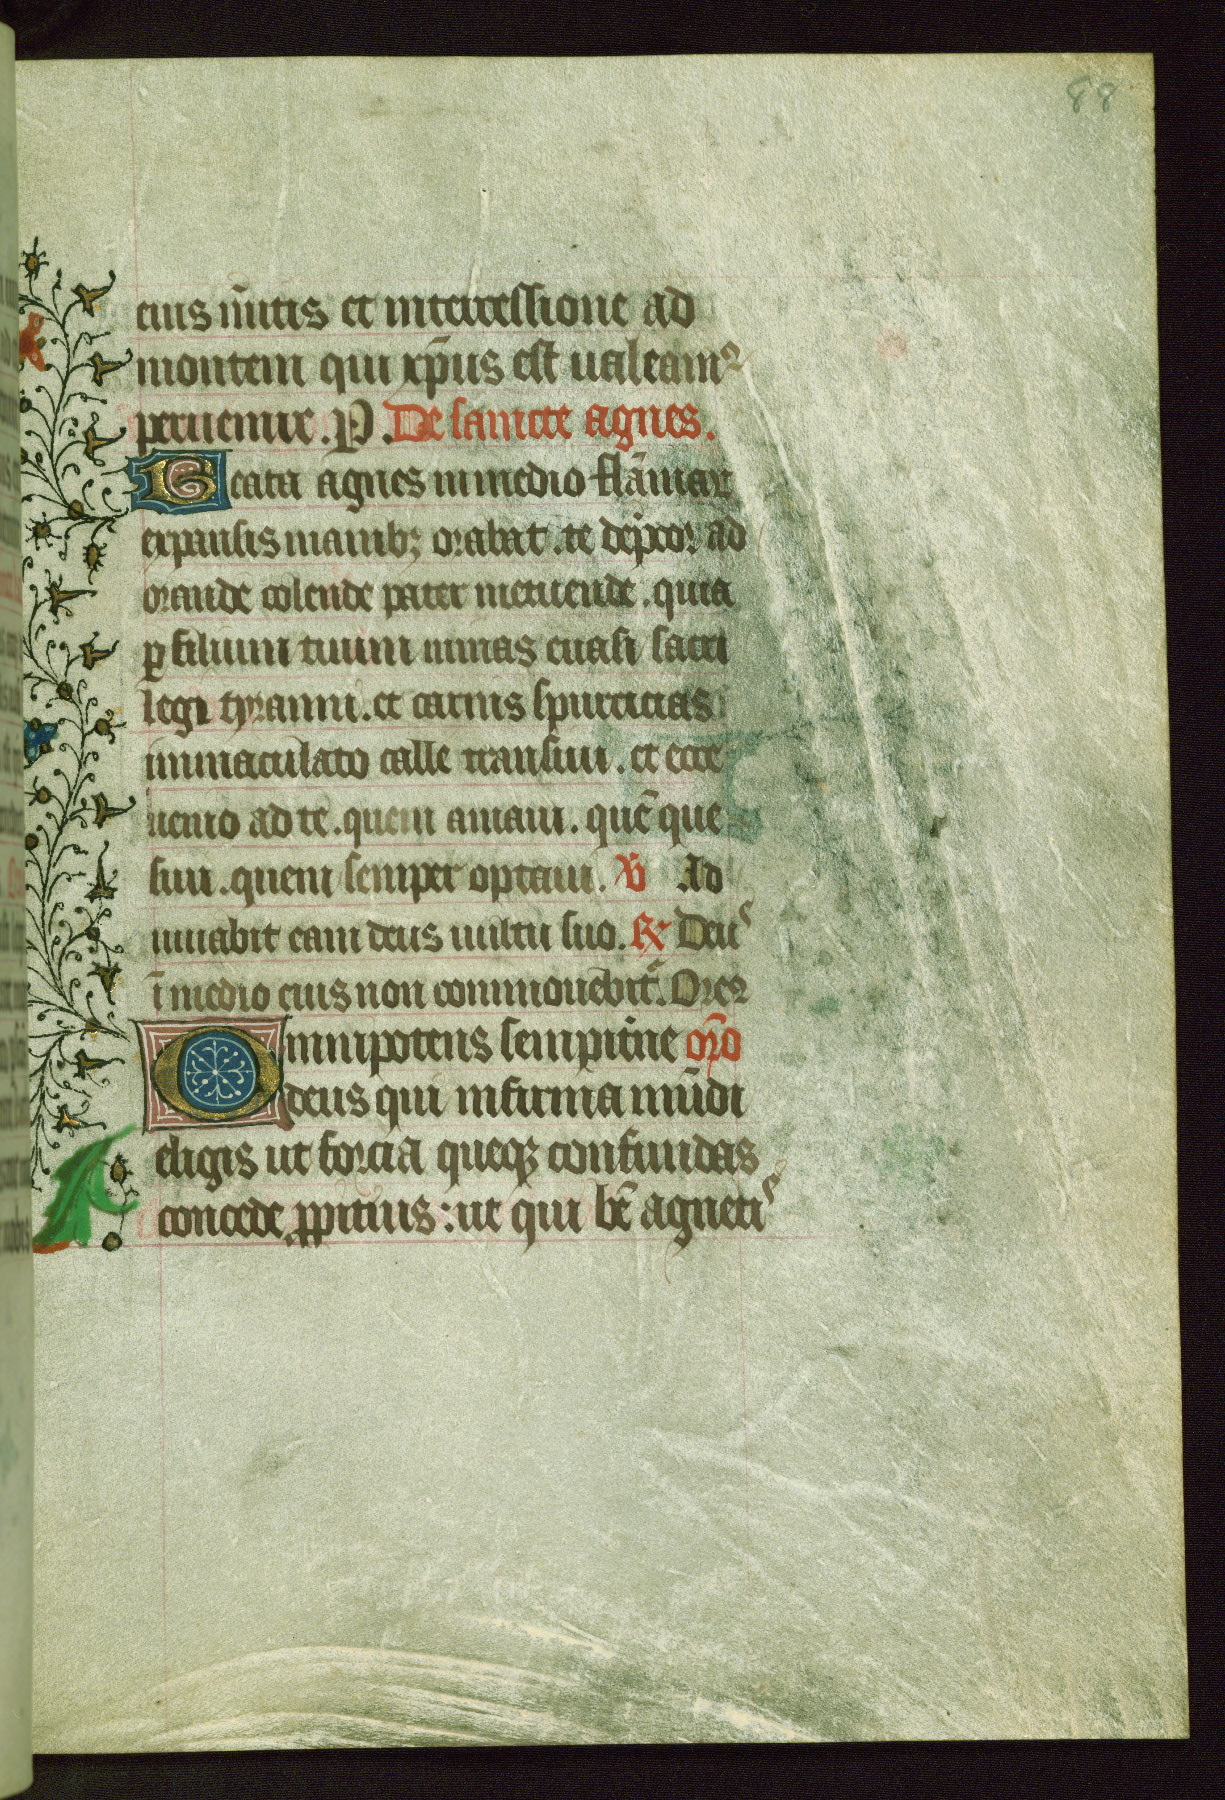 88
eius m̄itis et intercessione ad
montem qui xp̄us est ualeamꝰ
peruenire. P. De sancte agnes.
Beata agnes in medio flāmaꝝ
expansis manibꝫ orabat. te dep̄cor ad
orande colende pater metuende. quia
ꝑ filium tuum minas euasi sacri
legi tyranni. et carnis spurcicias
immaculato calle transiui. et ecce
uenio ad te. quem amaui. quē que
siui. quem semper optaui. V̸ Ad
iuuabit eam deus uultu suo. R̸ Deus
ī medio eius non commouebit᷑. Orem
Omnipotens sempit̄ne oro̅
deus qui infirma mūdi
eligis ut forcia queqꝫ confundas
concede ꝓpitius: ut qui bē agnetis